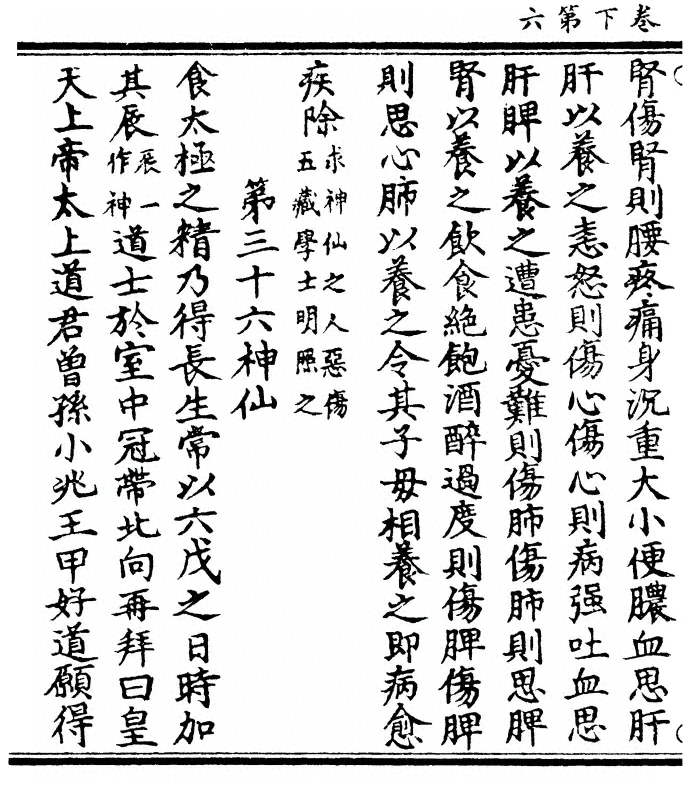 卷下第六
腎傷腎則腰疼痛身沉重大小便膿血思肝
肝以養之恚怒則傷心傷心則病强吐血思
肝脾以養之遭患憂難則傷肺傷肺則思脾
腎以養之飲食絶飽酒醉過度則傷脾傷脾
則思心肺以養之令其子母相養之即病愈
疾除求神仙之人惡傷五藏學士明照之
第三十六神仙
食太極之精乃得長生常以六戊之日時加
其辰辰一作神道士於室中冠帶北向再拜曰皇
天上帝太上道君曾孫小兆王甲好道願得